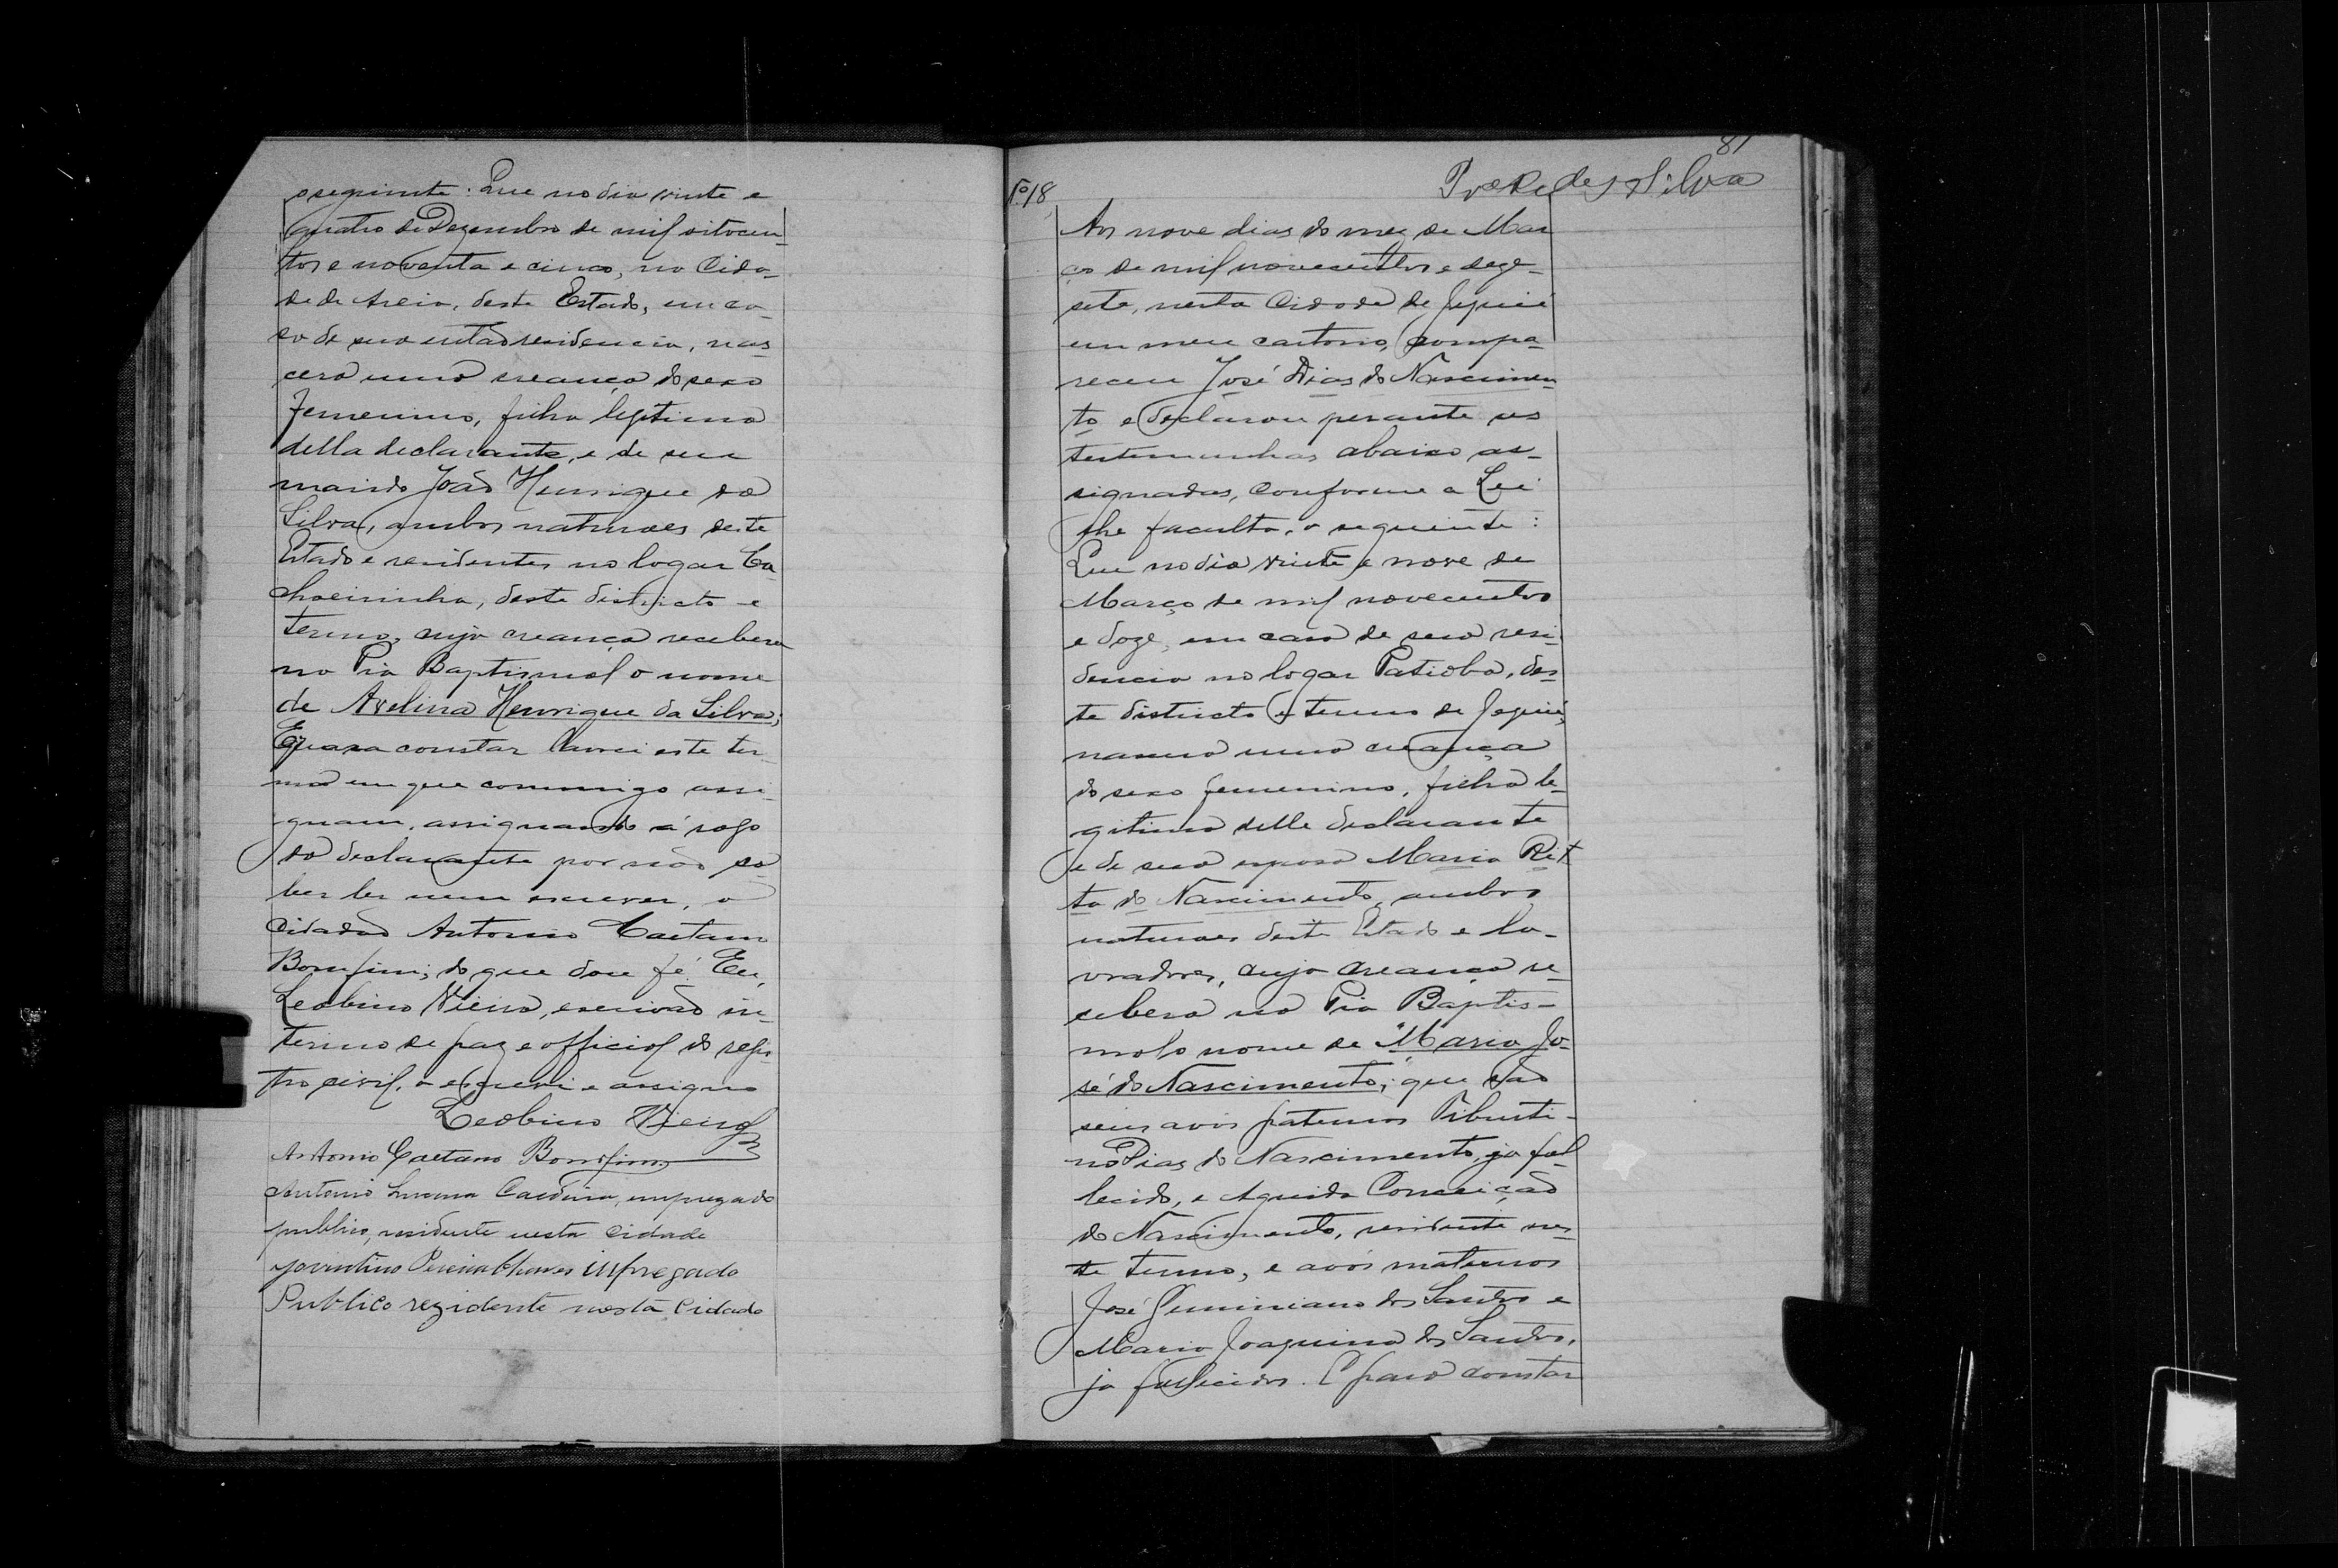 o seguinte: Que no dia vinte e
quatro de Dezembro de mil oitocen-
tos e noventa e cinco, na Cida-
de de Areia, deste Estado, em ca-
sa de sua então residencia, nas-
cera uma creança do sexo
femenino, filha legitima
della declarante, e de seu
marido João Henrique da
Silva, ambos naturaes deste
Estado e residentes no logar Ca-
choeirinha, deste districto e
termo, cuja creança recebera
na Pia Baptismal o nome
de Avelina Henrique da Silva;
E para constar lavrei este ter-
mo em que commigo assi-
gnam, assignando á rogo
da declarante por não sa-
ber ler nem escrever, o
cidadão Antonio Caetano
Bomfim; do que dou fé. Eu,
Leobino Vieira, escrivão in-
terino de paz e official do regis-
tro civil, o escrevi e assigno
Leobino Vieira
Antonio Caetano Bomfim
Antonio Cardeira, empregado
publico, residente nesta cidade
Jovintino Pereira Chaves impregado
Publico rezidente nesta Cidade
81
Nº 18,
Silva
Aos nove dias do mez de Mar
ço de mil novecentos e deze-
sete, nesta Cidade de Jequié
em meu cartorio, compa-
receu José Dias do Nascimen-
to e declarou perante as
testemunhas abaixo as-
signadas, conforme a Lei
lhe faculta, o seguinte:
Que no dia vinte e nove de
Março de mil novecentos
e doze, em casa de sua resi-
dencia no logar Patioba, des-
te districto e termo de Jequié,
nasceu uma creança
do sexo femenino, filha le-
gitima delle declarante
e de sua esposa Maria Rit-
ta do Nascimento, ambos
naturaes deste Estado e la-
vradores, cuja creança re-
cebera na Pia Baptis-
mal o nome de "Maria Jo-
sé do Nascimento; que são
seus avós paternos Tiburti-
no Dias do Nascimento, ja fal-
lecido, e Aguida Conceição
do Nascimento, residente nes-
te termo, e avós maternos
José Geminiano dos Santos e
Maria Joaquina dos Santos,
ja fallecidos. E para constar